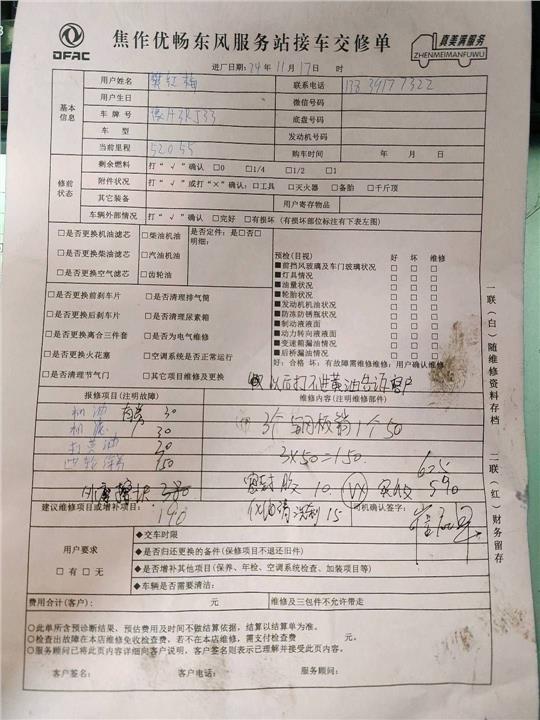 DFAC
焦作优畅东风服务站接车交修单
真美满服务
ZHENMEIMANFUWU
进厂日期:24年11月17日 时
基本信息
用户姓名
联系电话 133 3917 7322
用户生日
微信号码
车牌号 豫H3RJ33
底盘号码
车 型
发动机号码
当前里程 52055
购车时间 年 月 日
修前状态
剩余燃料 打“√”确认 □0 □1/4 □1/2 □1
附件状况 打“√”或打“×”确认:□工具 □灭火器 □备胎 □千斤顶
其它装备
用户寄存物品
车辆外部情况 打“√”确认 □完好 □有损坏(有损坏部位标注有下表左图)
□是否更换机油滤芯 □柴油机油
□是否更换柴油滤芯 □汽油机油
□是否更换空气滤芯 □齿轮油
是否定件:是□否□
明细:
□是否更换前刹车片 □是否清理排气筒
□是否更换后刹车片 □是否清理尿素箱
□是否更换离合三件套 □是否为电气维修
□是否更换火花塞 □空调系统是否正常运行
□是否清理节气门 □其它项目维修及更换
预检(目视) 好 坏 维修
■前挡风玻璃及车门玻璃状况 □ □ □
■灯具情况 □ □ □
■油量状况 □ □ □
■轮胎状况 □ □ □
■发动机机油状况 □ □ □
■防冻防锈瓶状况 □ □ □
■制动液液面 □ □ □
■动力转向液液面 □ □ □
■变速箱漏油情况 □ □ □
■后桥漏油情况 □ □ □
好:合格 坏:有故障需维修维修:用户确认维修
以后打不进黄油告诉客户
报修项目(注明故障)
维修内容(注明维修部件)
机油 自带 30
机滤 30
打黄油 30
四轮保养 150
3个 1个50
3×50=150
625
密封胶 10
实收 590
建议维修项目或增补项目:
190
化油清洗剂 15
司机确认签字:
用户要求
□有 □无
◆交车时限
◆是否归还更换的备件(保修项目不退还旧件)
◆是否增补其他项目(保养、年检、空调系统检查、加装项目等)
◆车辆是否需要清洁:
费用合计(客户): 元
维修及三包件不允许带走
○此单所含预诊断结果、预估费用及时间不做结算依据,结算以结算单为准。
○检查出故障在本店维修免收检查费,若不在本店维修,需支付检查费 元。
○服务顾问已将此页内容详细向客户说明,客户签名则表示已理解并接受此页内容。
客户签名: 客户电话: 服务顾问:
一联(白)随维修资料存档
二联(红)财务留存